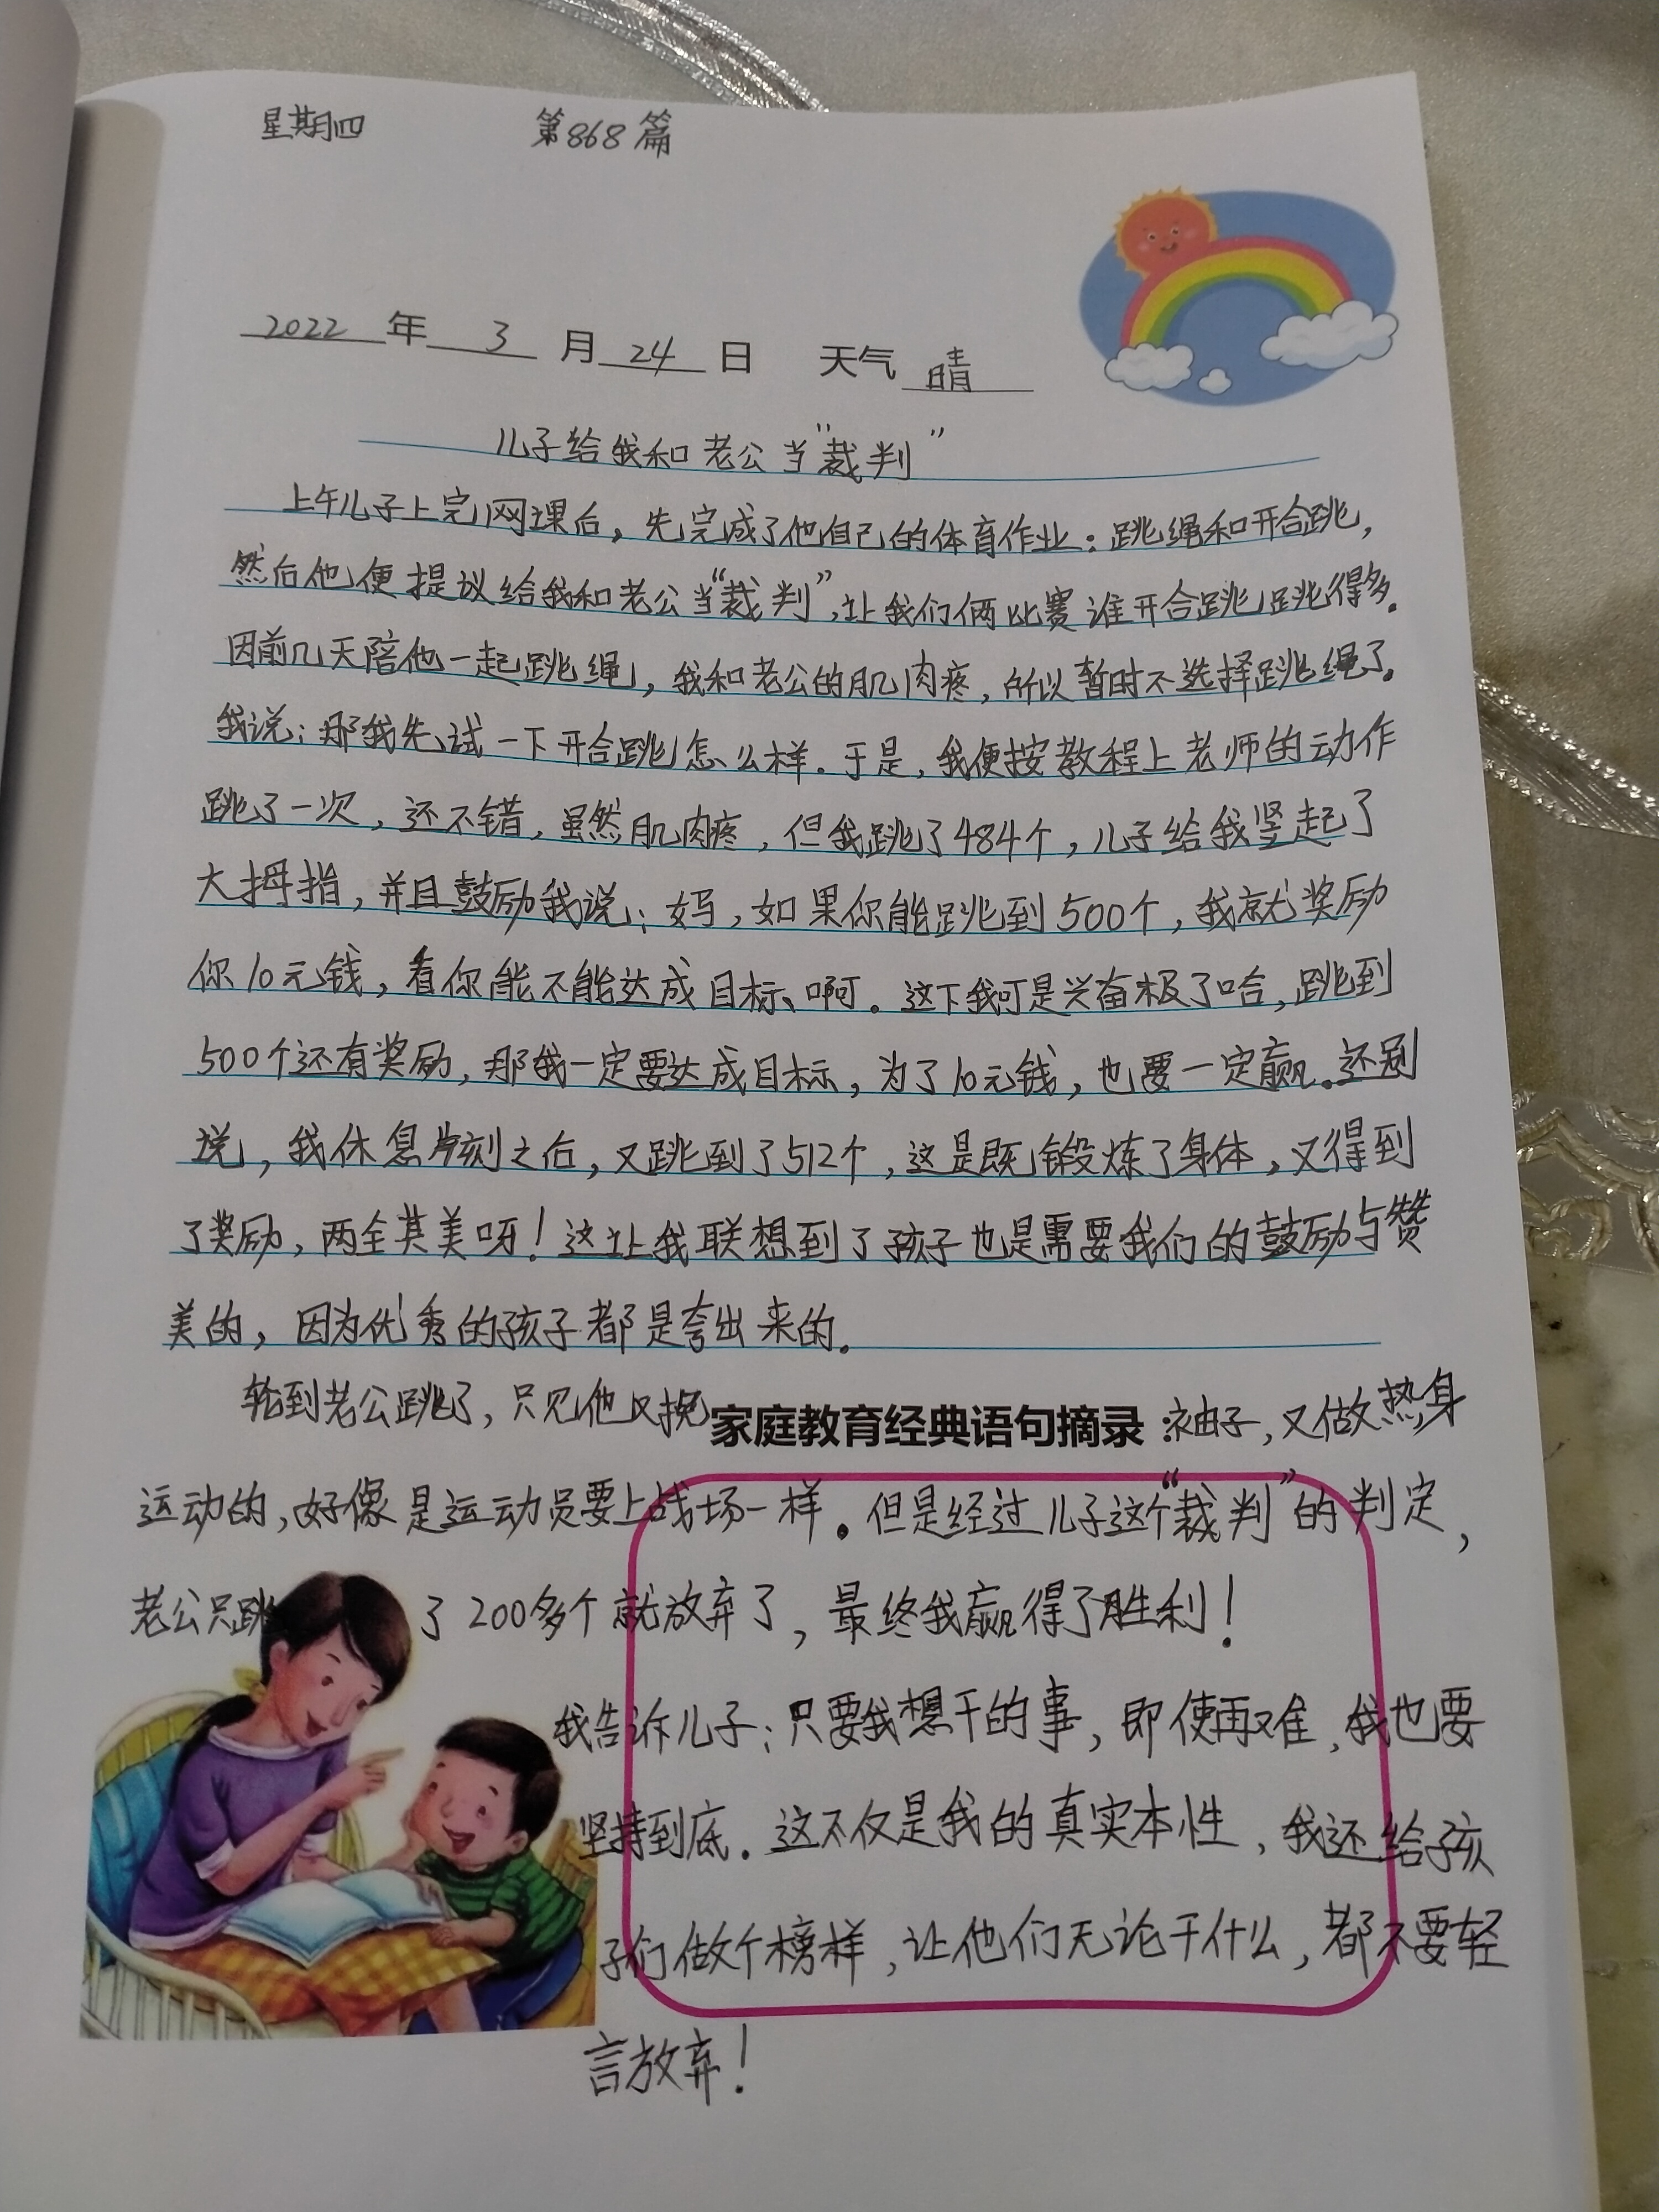 星期四 第868篇
2022年3月24日 天气 晴
儿子给我和老公当“裁判”
上午儿子上完网课后，先完成了他自己的体育作业：跳绳和开合跳，
然后他便提议给我和老公当“裁判”，让我们俩比赛谁开合跳跳得多。
因前几天陪他一起跳绳，我和老公的肌肉疼，所以暂时不选择跳绳了。
我说：那我先试一下开合跳怎么样。于是，我便按教程上老师的动作
跳了一次，还不错，虽然肌肉疼，但我跳了484个，儿子给我竖起了
大拇指，并且鼓励我说：妈，如果你能跳到500个，我就奖励
你10元钱，看你能不能达成目标啊。这下我可是兴奋极了哈，跳到
500个还有奖励，那我一定要达成目标，为了10元钱，也要一定赢。还别
说，我休息片刻之后，又跳到了512个，这是既锻炼了身体，又得到
了奖励，两全其美呀！这让我联想到了孩子也是需要我们的鼓励与赞
美的，因为优秀的孩子都是夸出来的。
轮到老公跳了，只见他又挽 家庭教育经典语句摘录：袖子，又做热身
运动的，好像是运动员要上战场一样。但是经过儿子这个“裁判”的判定，
老公只跳了200多个就放弃了，最终我赢得了胜利！
我告诉儿子：只要我想干的事，即使再难，我也要
坚持到底。这不仅是我的真实本性，我还给孩
子们做个榜样，让他们无论干什么，都不要轻
言放弃！